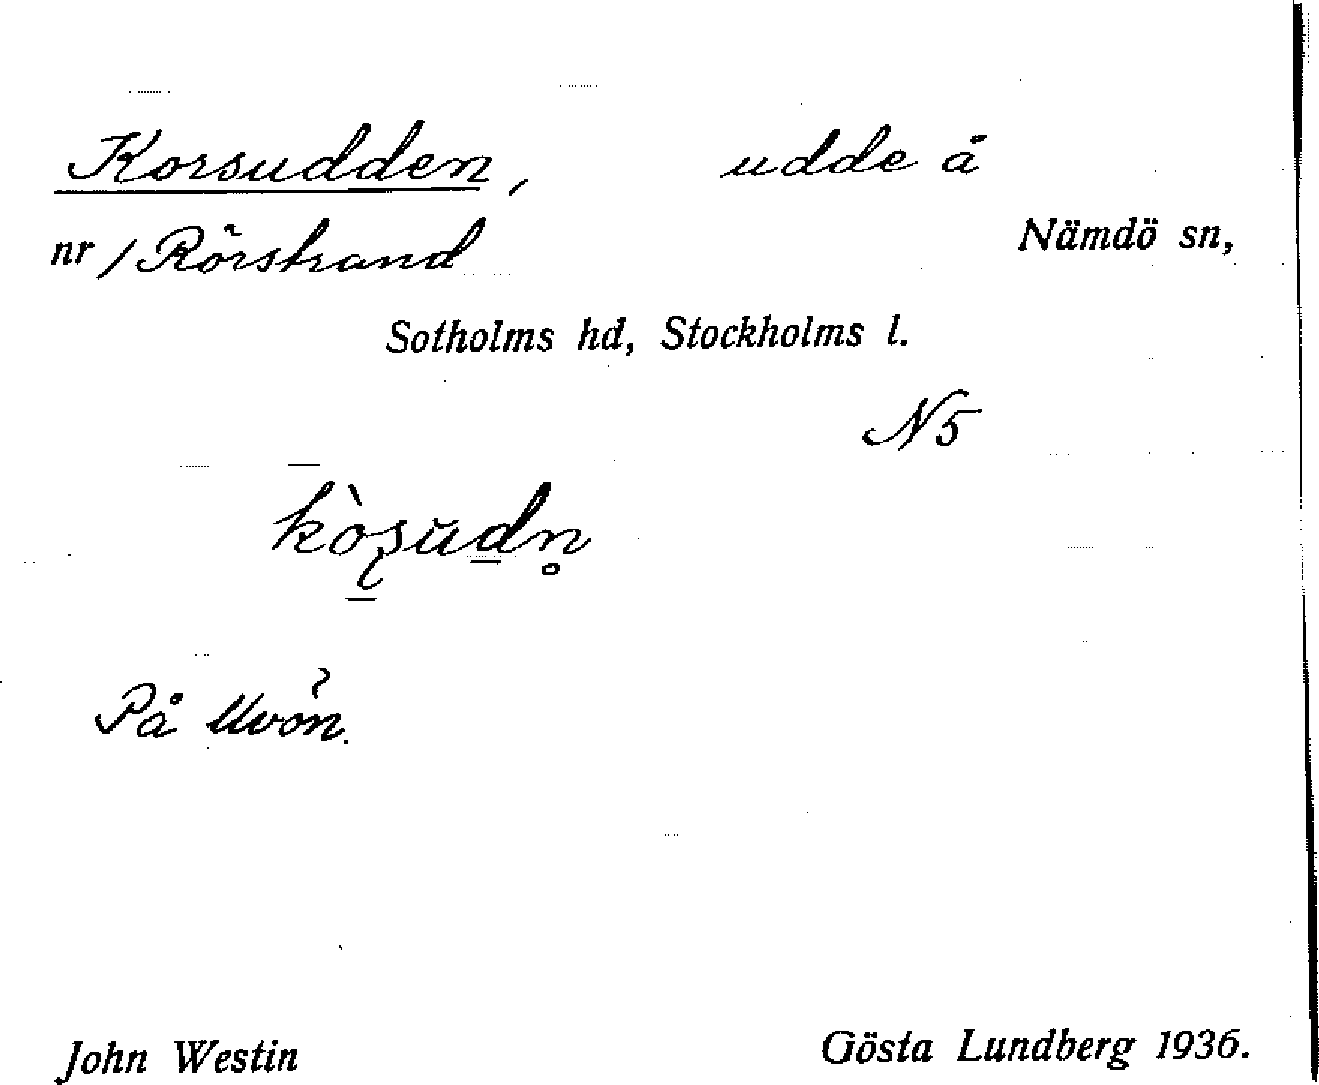 Korsudden, udde å
nr / Rörstrand Nämdö sn,
Sotholms hd, Stockholms l.
N5
På Uvön.
John Westin Gösta Lundberg 1936.